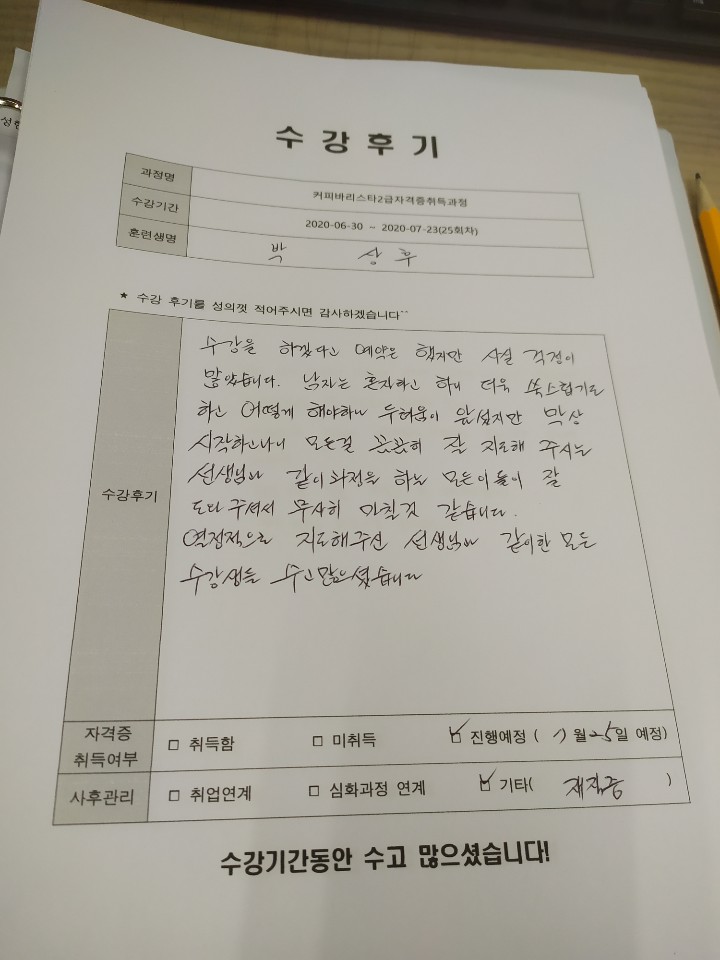 성현
수 강 후 기
과정명 커피바리스타2급자격증취득과정
수강기간 2020-06-30 ~ 2020-07-23(25회차)
훈련생명 박 상 후
★ 수강 후기를 성의껏 적어주시면 감사하겠습니다^^
수강후기
수강을 하겠다고 예약은 했지만 사실 걱정이
많았습니다. 남자는 혼자라고 하니 더욱 쑥스럽기도
하고 어떻게 해야하나 두려움이 앞섰지만 막상
시작하고나니 모든걸 꼼꼼히 잘 지도해 주시는
선생님과 같이 과정을 하는 모든이들이 잘
도와 주셔서 무사히 마칠것 같습니다.
열정적으로 지도해주신 선생님과 같이한 모든
수강생들 수고많으셨습니다
자격증 취득여부 □ 취득함 □ 미취득 ☑ 진행예정 ( 7월 25일 예정)
사후관리 □ 취업연계 □ 심화과정 연계 ☑ 기타( 재직중 )
수강기간동안 수고 많으셨습니다!